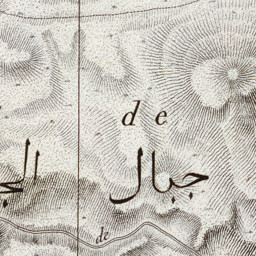 de
جبال
الج
de